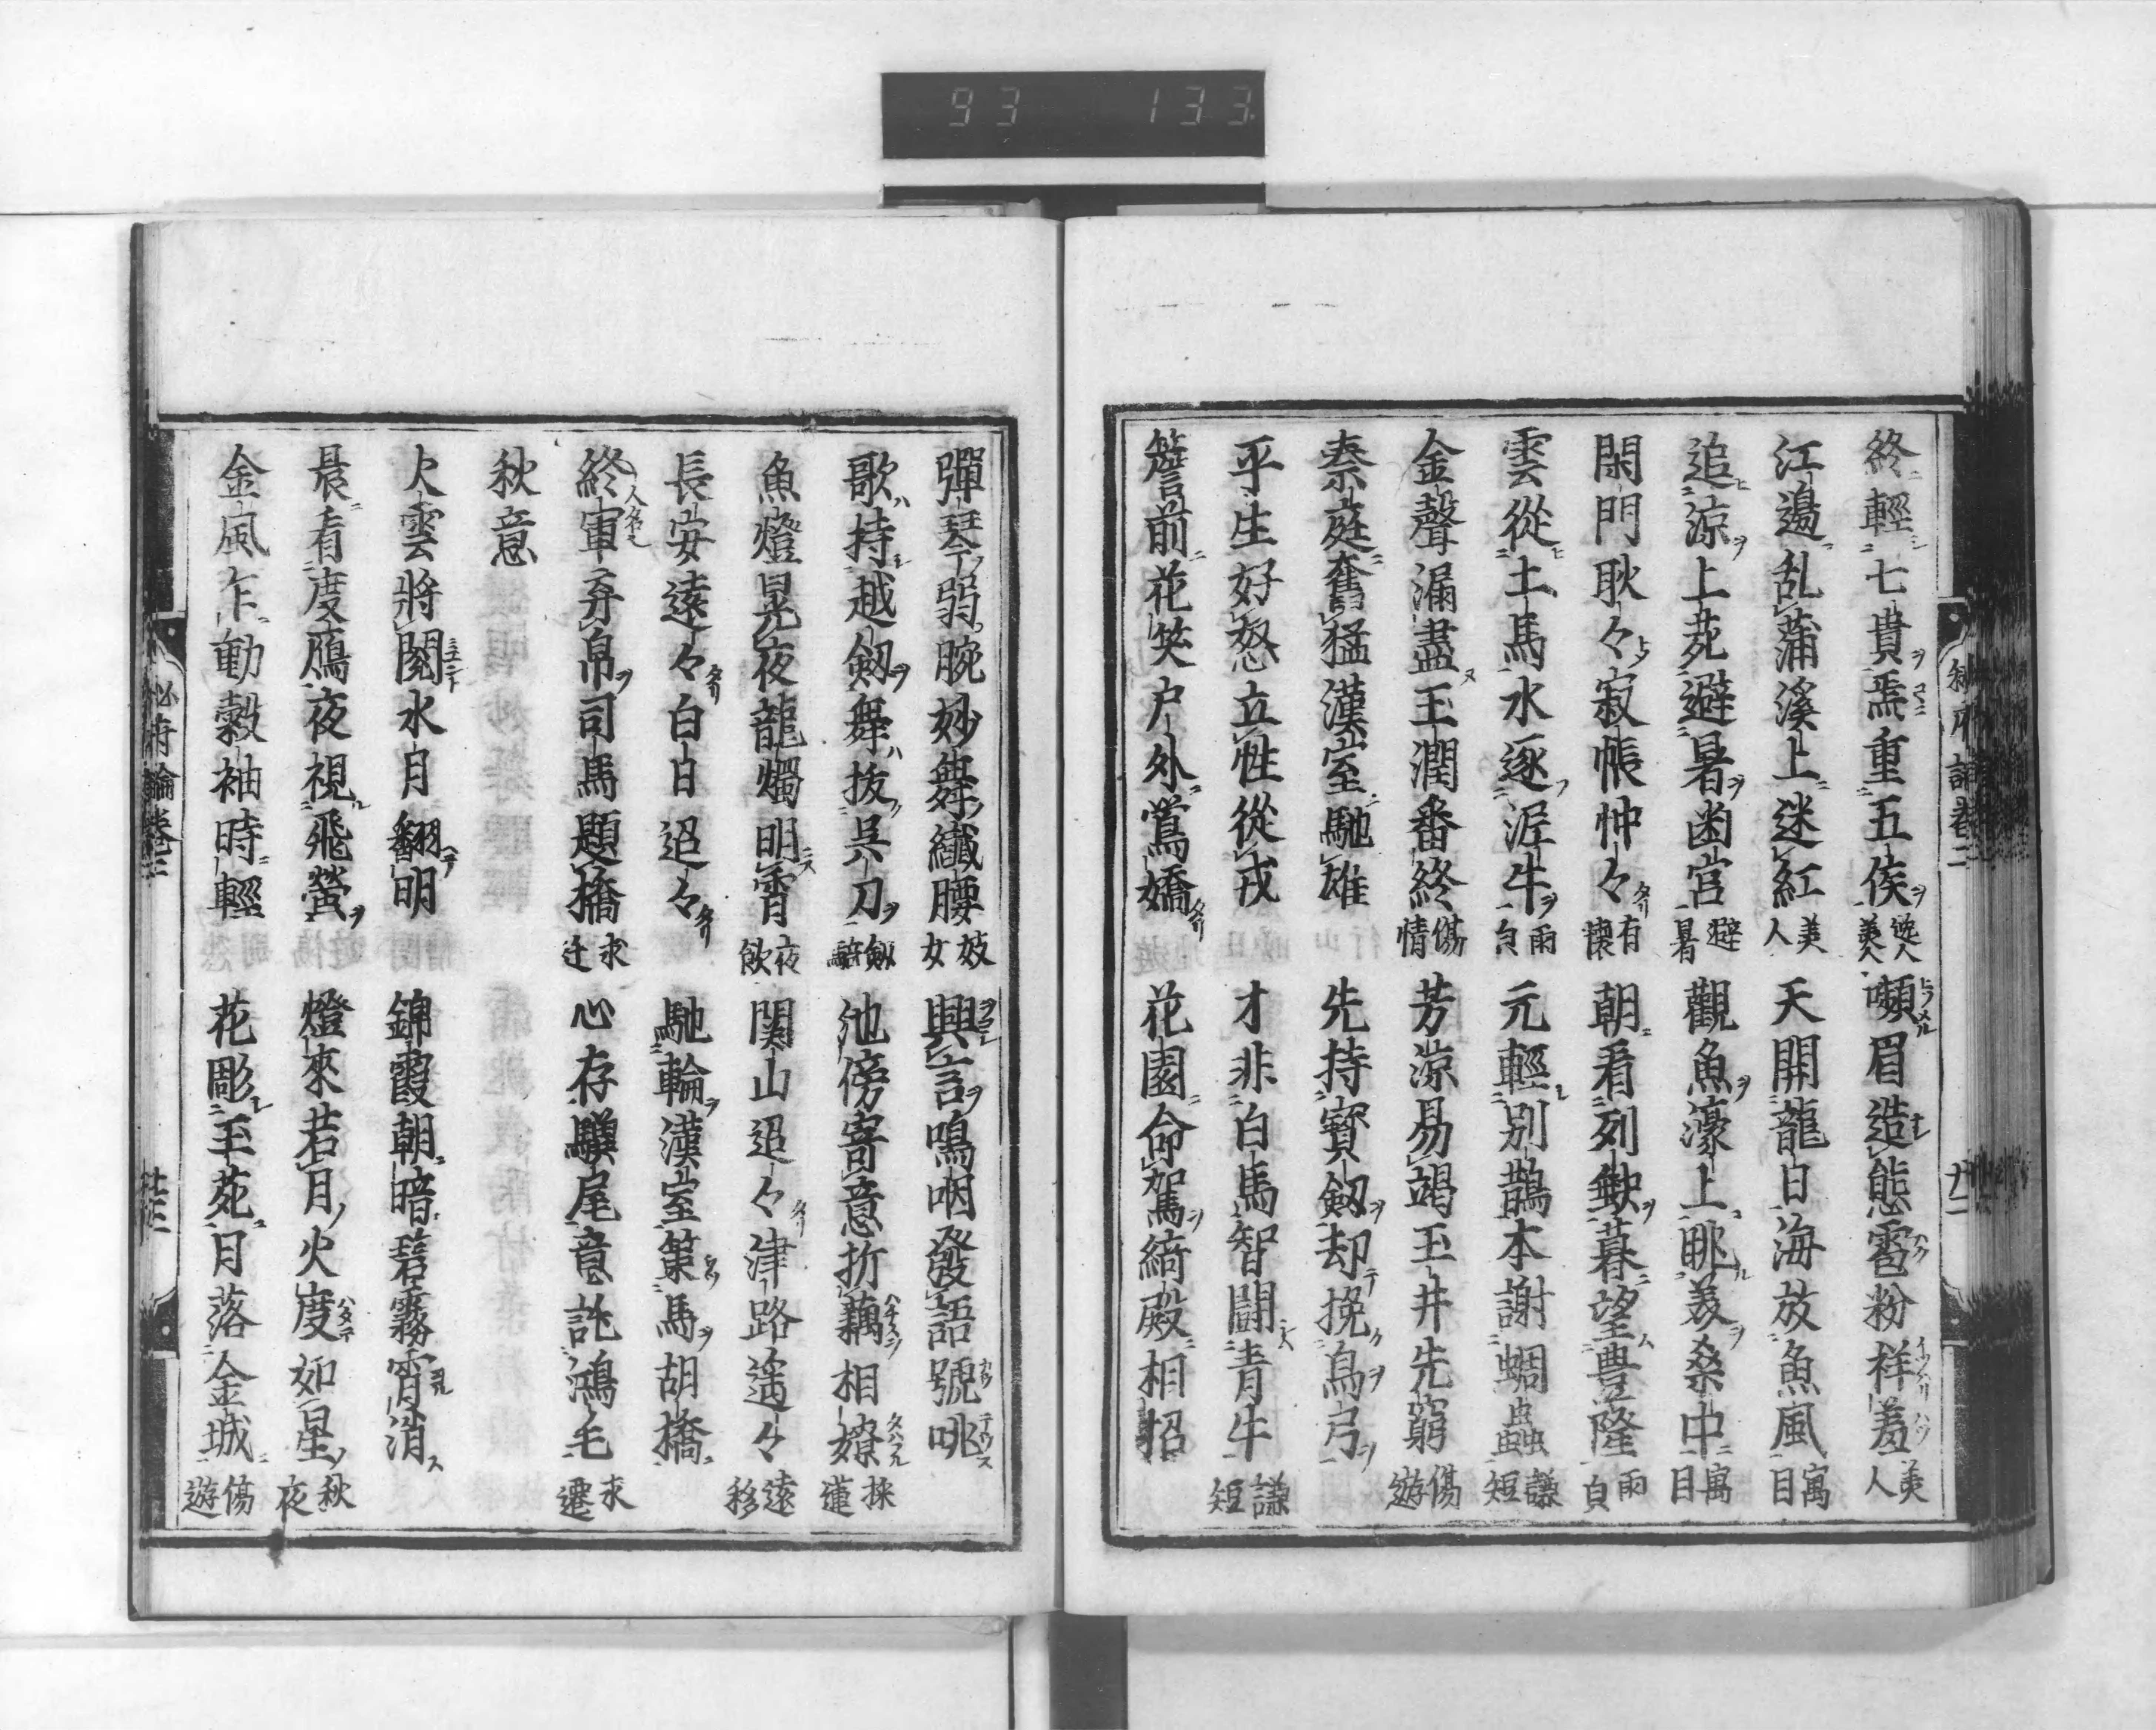 93 133
終輕七貴焉重五侯 逸人美人 嚬眉造態雹粉祥羞 美人
江邊乱蒲溪上迷紅 美人 天開龍日海放魚風 寓目
追涼上菀避暑幽宮 避暑 觀魚濠上眺義桑中 寓目
閑門耿々寂帳忡々 有懷 朝看列缺暮望豊隆 雨頁
雲從土馬水逐泥牛 雨頁 元輕別鵲本謝蜩蟲 謙短
金聲漏盡玉潤番終 傷情 芳涼易竭玉井先窮 傷遊
秦庭奮猛漢室馳雄 先持寳劔却挽烏弓
平生好怒立性從戎 才非白馬智闘青牛 謙短
簷前花笑户外鶯嬌 花園命駕綺殿相招
彈琴弱腕妙舞纖腰 妓女 興言鳴咽發語號咷
歌持越劔舞抜呉刀 劔騎 池傍寄意折藕相嫽 採蓮
魚燈晃夜龍燭明霄 夜飲 関山迢々津路遥々 遠移
長安遠々白日迢々 馳輪漢室策馬胡橋
終軍弃帛司馬題橋 求迁 心存驥尾意訛鴻毛 求遷
秋意
火雲將闋水月翻明 錦霞朝暗碧霧宵消
晨看度鴈夜視飛螢 燈來若月火度如星 秋夜
金風乍動縠袖時輕 花彫玉苑月落金城 傷遊